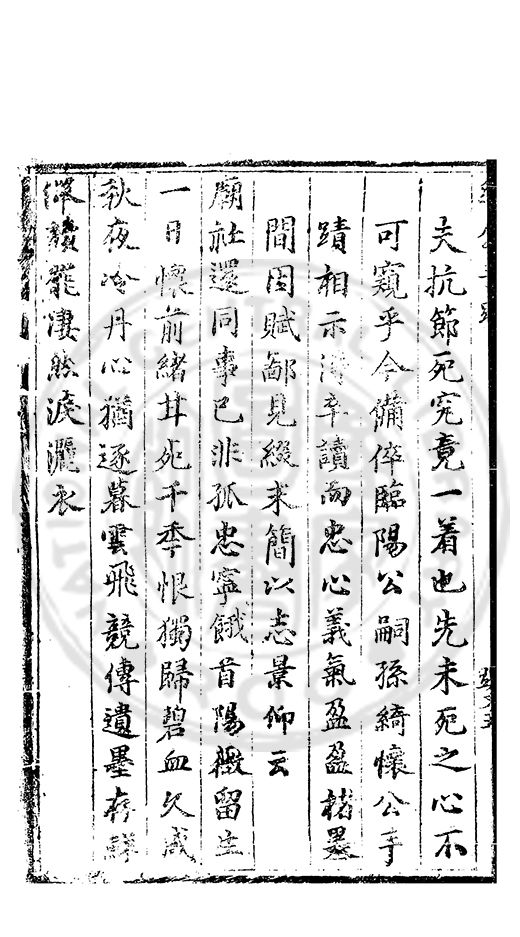 夫抗節死究竟一着也先未死之心不
可窺乎今備倅臨陽公嗣孫綺懷公手
蹟相示淂卒讀而忠心義氣盈盈楮墨
間因賦鄙見綴末簡以志景仰云
廟社遷同事已非孤忠寧餓首陽薇留生
一日懷前緒拌死千季恨獨歸碧血久成
秋夜冷丹心猶逐暮雲飛競傳遺墨存
罷凄然淚灑衣